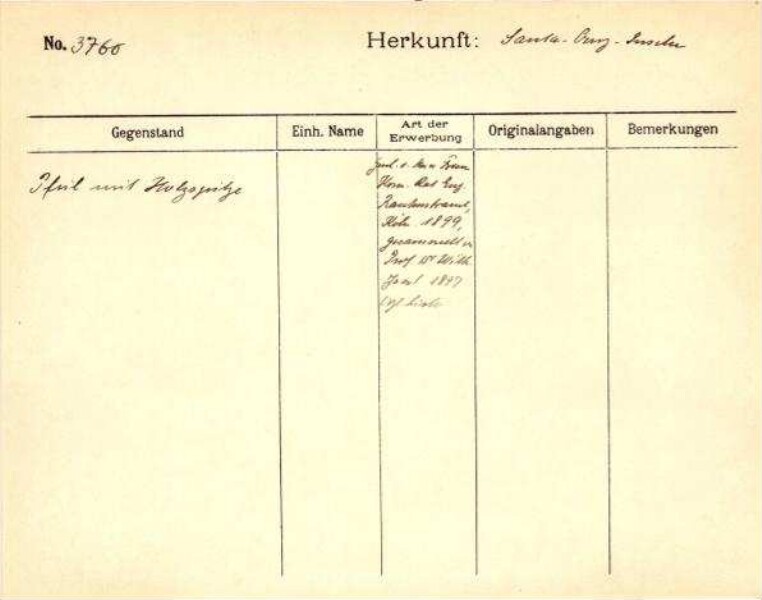 No. 3760
Herkunft: Santa-Cruz-Inseln
Gegenstand
Einh. Name
Art der Erwerbung
Originalangaben
Bemerkungen
Pfeil mit Holzspitze
Gesch. v. Frau
Kom. Rat Eug.
Rautenstrauch,
Köln 1899,
gesammelt v.
Prof Dr Wilh.
Joest 1897